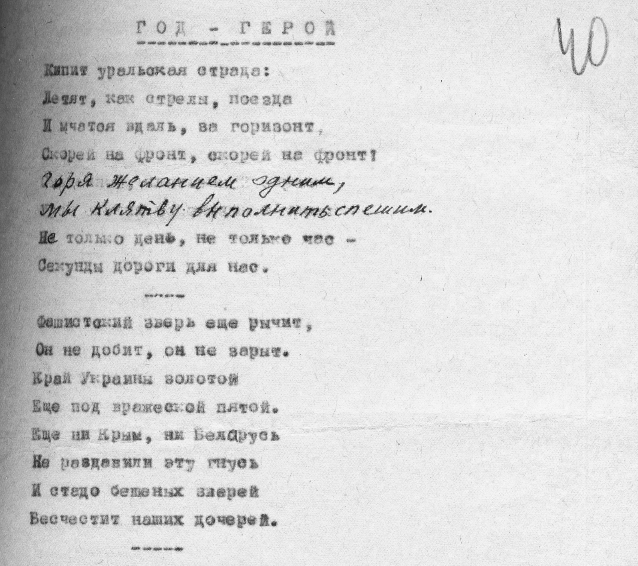 40
ГОД - ГЕРОЙ
Кипит уральская страда:
Летят, как стрелы, поезда
И мчатся вдаль, за горизонт,
Скорей на фронт, скорей на фронт!
Горя желанием одним,
мы клятву выполнить спешим.
Не только день, не только час -
Секунды дороги для нас.
-----
Фашистский зверь еще рычит,
Он не добит, он не зарыт.
Край Украины золотой
Еще под вражеской пятой.
Еще ни Крым, ни Беларусь
Не раздавили эту гнусь
И стадо бешеных зверей
Бесчестит наших дочерей.
-----